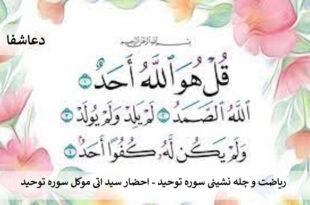 دعاشفا
بِسْمِ اللَّهِ الرَّحْمَٰنِ الرَّحِيمِ
قُلْ هُوَ ٱللَّهُ أَحَدٌ ١
ٱللَّهُ ٱلصَّمَدُ ٢ لَمْ يَلِدْ وَلَمْ يُولَدْ ٣
وَلَمْ يَكُن لَّهُۥ كُفُوًا أَحَدٌۢ ٤
ریاضت و چله نشینی سوره توحید - احضار سید اتی موکل سوره توحید